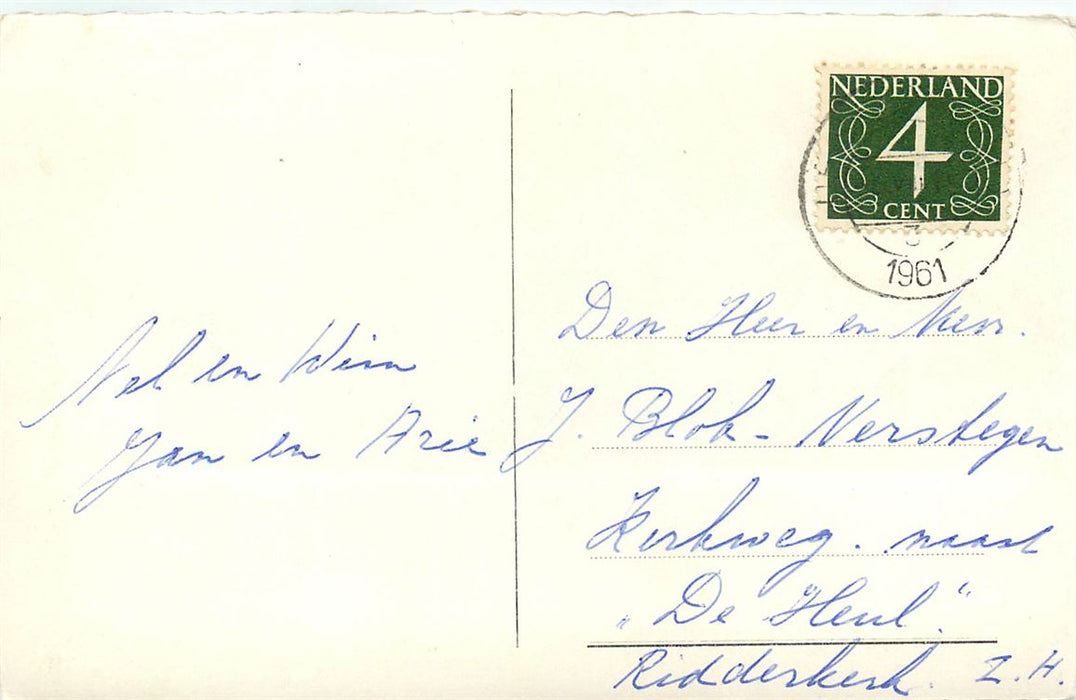 NEDERLAND
4
CENT
3
1961
Nel en Wim
Jan en Arie
Den Heer en Mevr.
J. Blok - Verstegen
Kerkweg. naast
"De Heul."
Ridderkerk. Z.H.